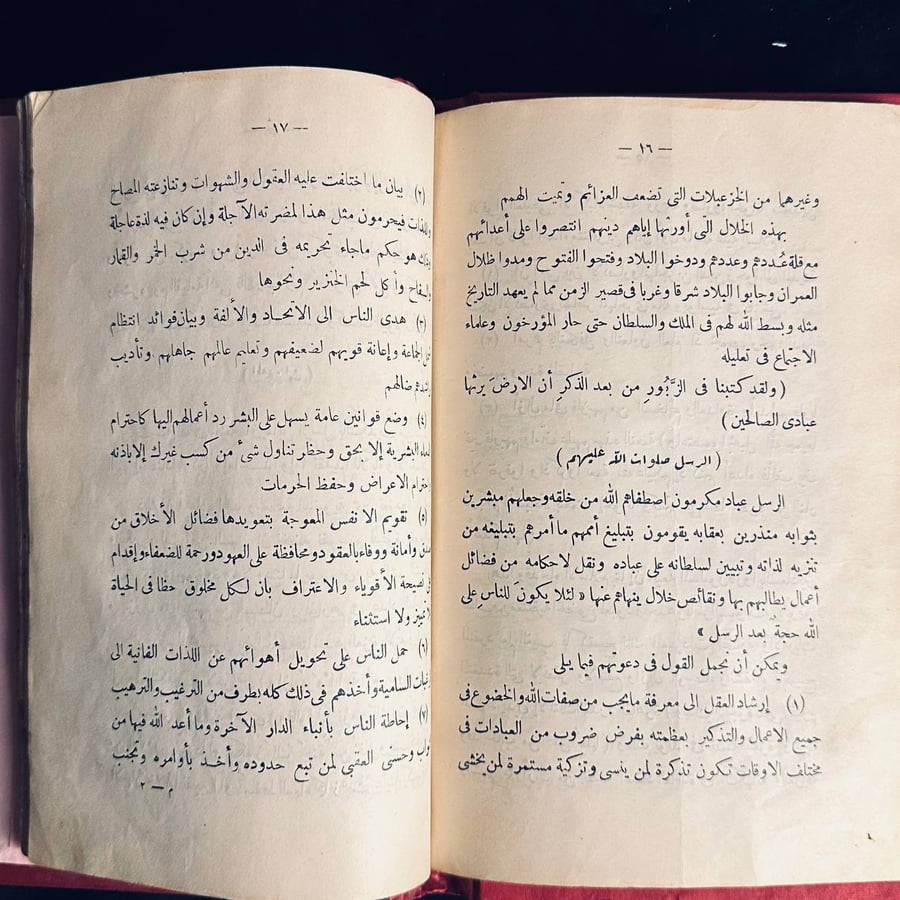 — ١٦ —
وغيرهما من الخزعبلات التي تضعف العزائم وتميت الهمم
بهذه الخلال التي أورثها إياهم دينهم انتصروا على أعدائهم
مع قلة عُددهم وعددهم ودوخوا البلاد وفتحوا الفتوح ومدوا ظلال
العمران وجابوا البلاد شرقا وغربا فى قصير الزمن مما لم يعهد التاريخ
مثله وبسط الله لهم فى الملك والسلطان حتى حار المؤرخون وعلماء
الاجتماع فى تعليله
(ولقد كتبنا فى الزَّبُورِ من بعد الذكرِ أن الارضَ يرثها
عبادى الصالحين)
(الرسل صلوات الله عليهم)
الرسل عباد مكرمون اصطفاهم الله من خلقه وجعلهم مبشرين
بثوابه منذرين بعقابه يقومون بتبليغ أممهم ما أمرهم بتبليغه من
تنزيه لذاته وتبيين لسلطانه على عباده ونقل لاحكامه من فضائل
أعمال يطالبهم بها ونقائص خلال ينهاهم عنها «لئلا يكونَ للناسِ على
الله حجةٌ بعد الرسل»
ويمكن أن نجمل القول فى دعوتهم فيما يلى
(١) إرشاد العقل الى معرفة مايجب من صفات الله والخضوع فى
جميع الاعمال والتذكير بعظمته بفرض ضروب من العبادات فى
مختلف الاوقات تكون تذكرة لمن ينسى وتزكية مستمرة لمن يخشى
— ١٧ —
(٢) بيان ما اختلفت عليه العقول والشهوات وتنازعته المصالح
واللذات فيحرمون مثل هذا لمضرته الآجلة وإن كان فيه لذة عاجلة
هو حكم ماجاء تحريمه فى الدين من شرب الخمر والقمار
والسفاح وأكل لحم الخنزير ونحوها
(٣) هدى الناس الى الاتحاد والألفة وبيان فوائد انتظام
الجماعة وإعانة قويهم لضعيفهم وتعليم عالمهم جاهلهم وتأديب
راشدهم ضالهم
(٤) وضع قوانين عامة يسهل على البشر رد أعمالهم اليها كاحترام
الدماء البشرية إلا بحق وحظر تناول شئ من كسب غيرك إلا باذنه
واحترام الاعراض وحفظ الحرمات
(٥) تقويم الانفس المعوجة بتعويدها فضائل الأخلاق من
صدق وأمانة ووفاء بالعقود ومحافظة على العهود ورحمة للضعفاء وإقدام
نصيحة الأقوياء والاعتراف بان لكل مخلوق حظا فى الحياة
تمييز ولا استثناء
(٦) حمل الناس على تحويل أهوائهم عن اللذات الفانية الى
السامية وأخذهم فى ذلك كله بطرف من الترغيب والترهيب
(٧) إحاطة الناس بأنباء الدار الآخرة وما أعد الله فيها من
ثواب وحسنى العقبى لمن تبع حدوده وأخذ بأوامره وتجنب
م — ٢